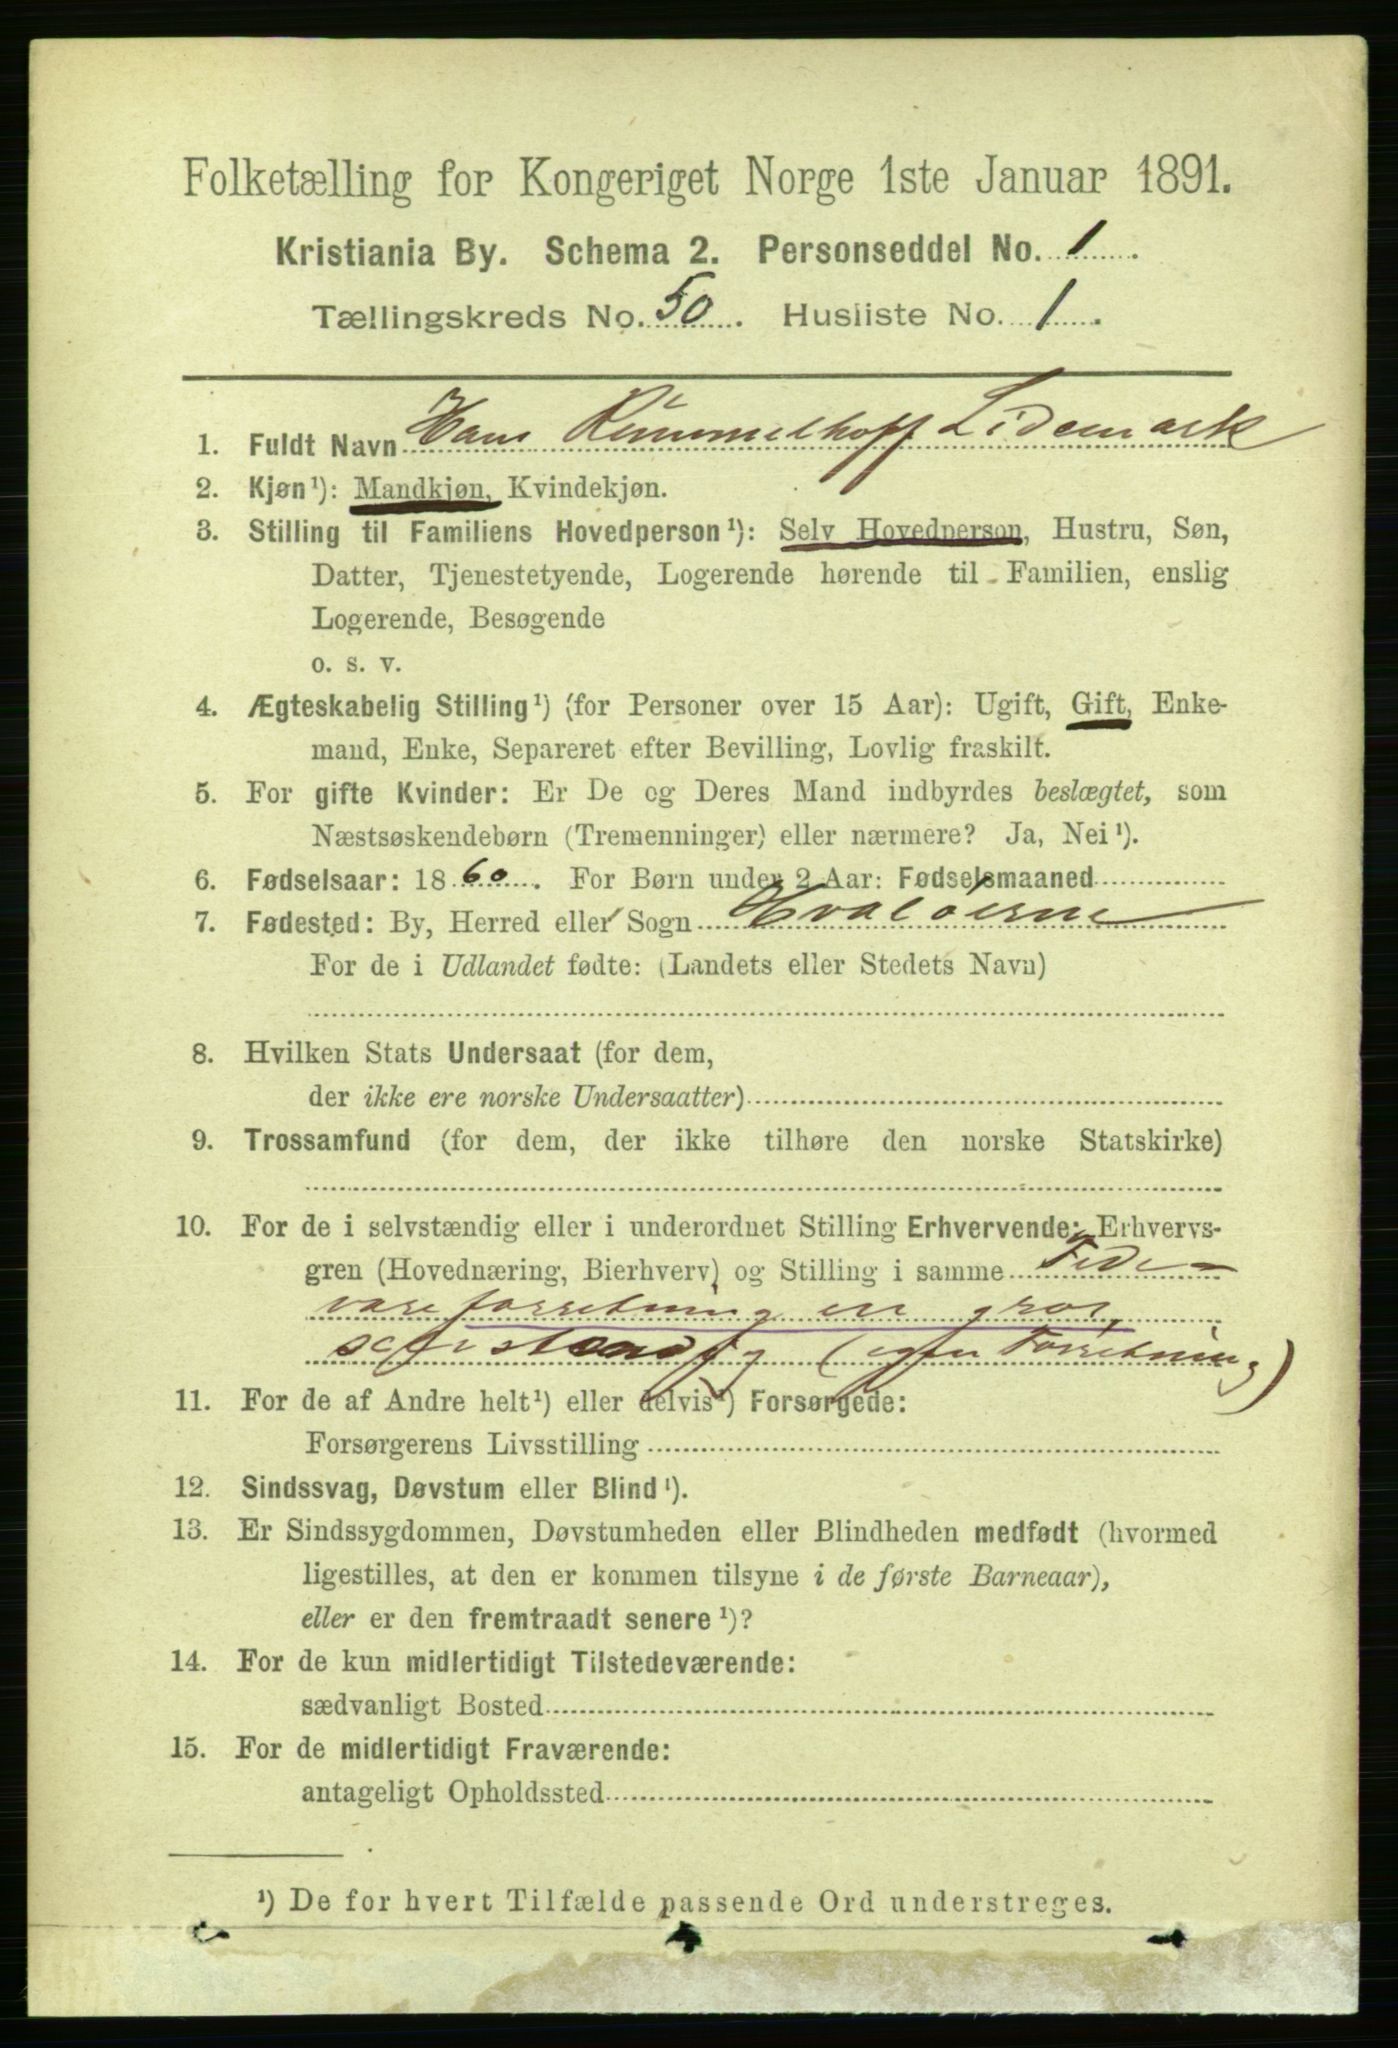 Folketælling for Kongeriget Norge 1ste Januar 1891.
Kristiania By. Schema 2. Personseddel No. 1.
Tællingskreds No. 50. Husliste No. 1.
1. Fuldt Navn Hans Rummelhoff Lidemark
2. Kjøn¹): Mandkjøn, Kvindekjøn.
3. Stilling til Familiens Hovedperson¹): Selv Hovedperson, Hustru, Søn,
Datter, Tjenestetyende, Logerende hørende til Familien, enslig
Logerende, Besøgende
o. s. v.
4. Ægteskabelig Stilling¹) (for Personer over 15 Aar): Ugift, Gift, Enke-
mand, Enke, Separeret efter Bevilling, Lovlig fraskilt.
5. For gifte Kvinder: Er De og Deres Mand indbyrdes beslægtet, som
Næstsøskendebørn (Tremenninger) eller nærmere? Ja, Nei¹).
6. Fødselsaar: 1860. For Børn under 2 Aar: Fødselsmaaned
7. Fødested: By, Herred eller Sogn Hvaløerne
For de i Udlandet fødte: (Landets eller Stedets Navn)
8. Hvilken Stats Undersaat (for dem,
der ikke ere norske Undersaatter)
9. Trossamfund (for dem, der ikke tilhøre den norske Statskirke)
10. For de i selvstændig eller i underordnet Stilling Erhvervende: Erhvervs-
gren (Hovednæring, Bierhverv) og Stilling i samme Fede-
vareforretning en gros,
selvstændig (egen Forretning)
11. For de af Andre helt¹) eller delvis¹) Forsørgede:
Forsørgerens Livsstilling
12. Sindssvag, Døvstum eller Blind¹).
13. Er Sindssygdommen, Døvstumheden eller Blindheden medfødt (hvormed
ligestilles, at den er kommen tilsyne i de første Barneaar),
eller er den fremtraadt senere¹)?
14. For de kun midlertidigt Tilstedeværende:
sædvanligt Bosted
15. For de midlertidigt Fraværende:
antageligt Opholdssted
¹) De for hvert Tilfælde passende Ord understreges.